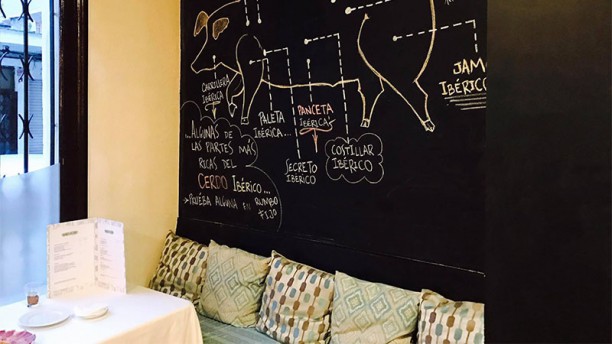 CARRILLERA
IBÉRICA
PALETA
IBÉRICA...
PANCETA
IBÉRICA
SECRETO
IBERICO
COSTILLAR
IBÉRICO
JAM
IBÉRICO
...ALGUNAS DE
LAS PARTES MÁS
RICAS DEL
CERDO IBÉRICO...
PRUEBA ALGUNA EN RUMBO